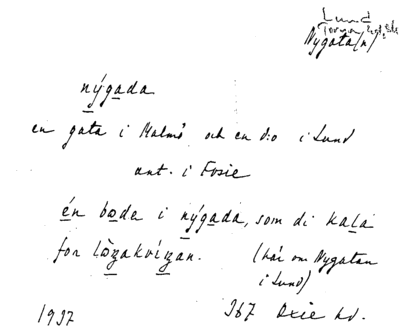 Lund
Torna hd, Sk.
Nygata(n)
nýgada
en gata i Malmö och en d:o i Lund
ant. i Fosie
én bode i nýgada, som di kala
for lòzakvízan.
(här om Nygatan
i Lund)
1937
367 Oxie hd.